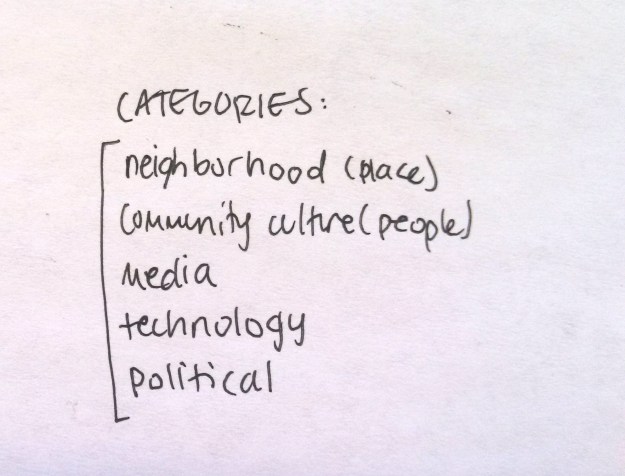 CATEGORIES:
neighborhood (place)
Community culture (people)
Media
technology
political